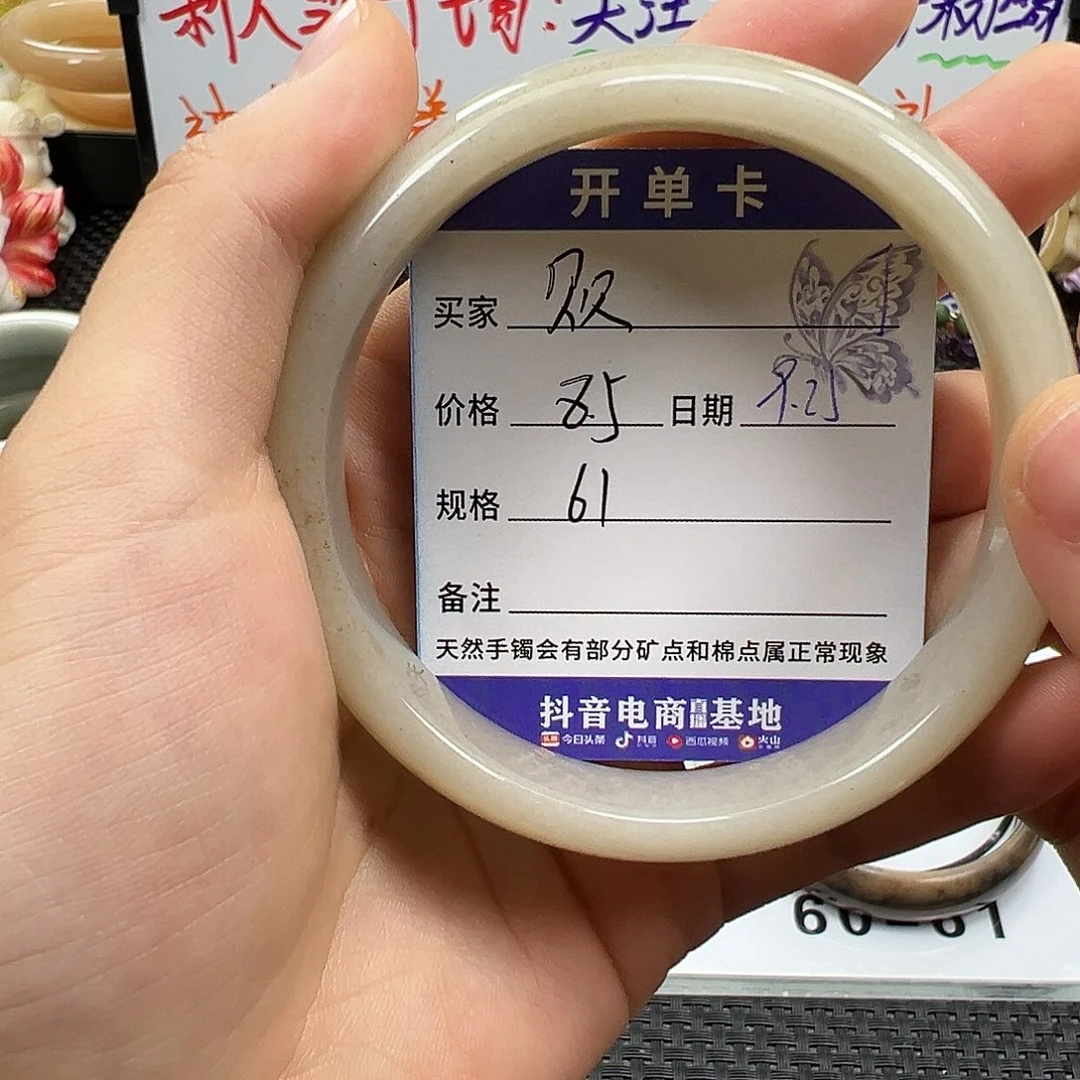 开单卡
买家
价格 85 日期 9.25
规格 61
备注
天然手镯会有部分矿点和棉点属正常现象
抖音电商直播基地
头条 今日头条 抖音 西瓜视频 火山
60-61